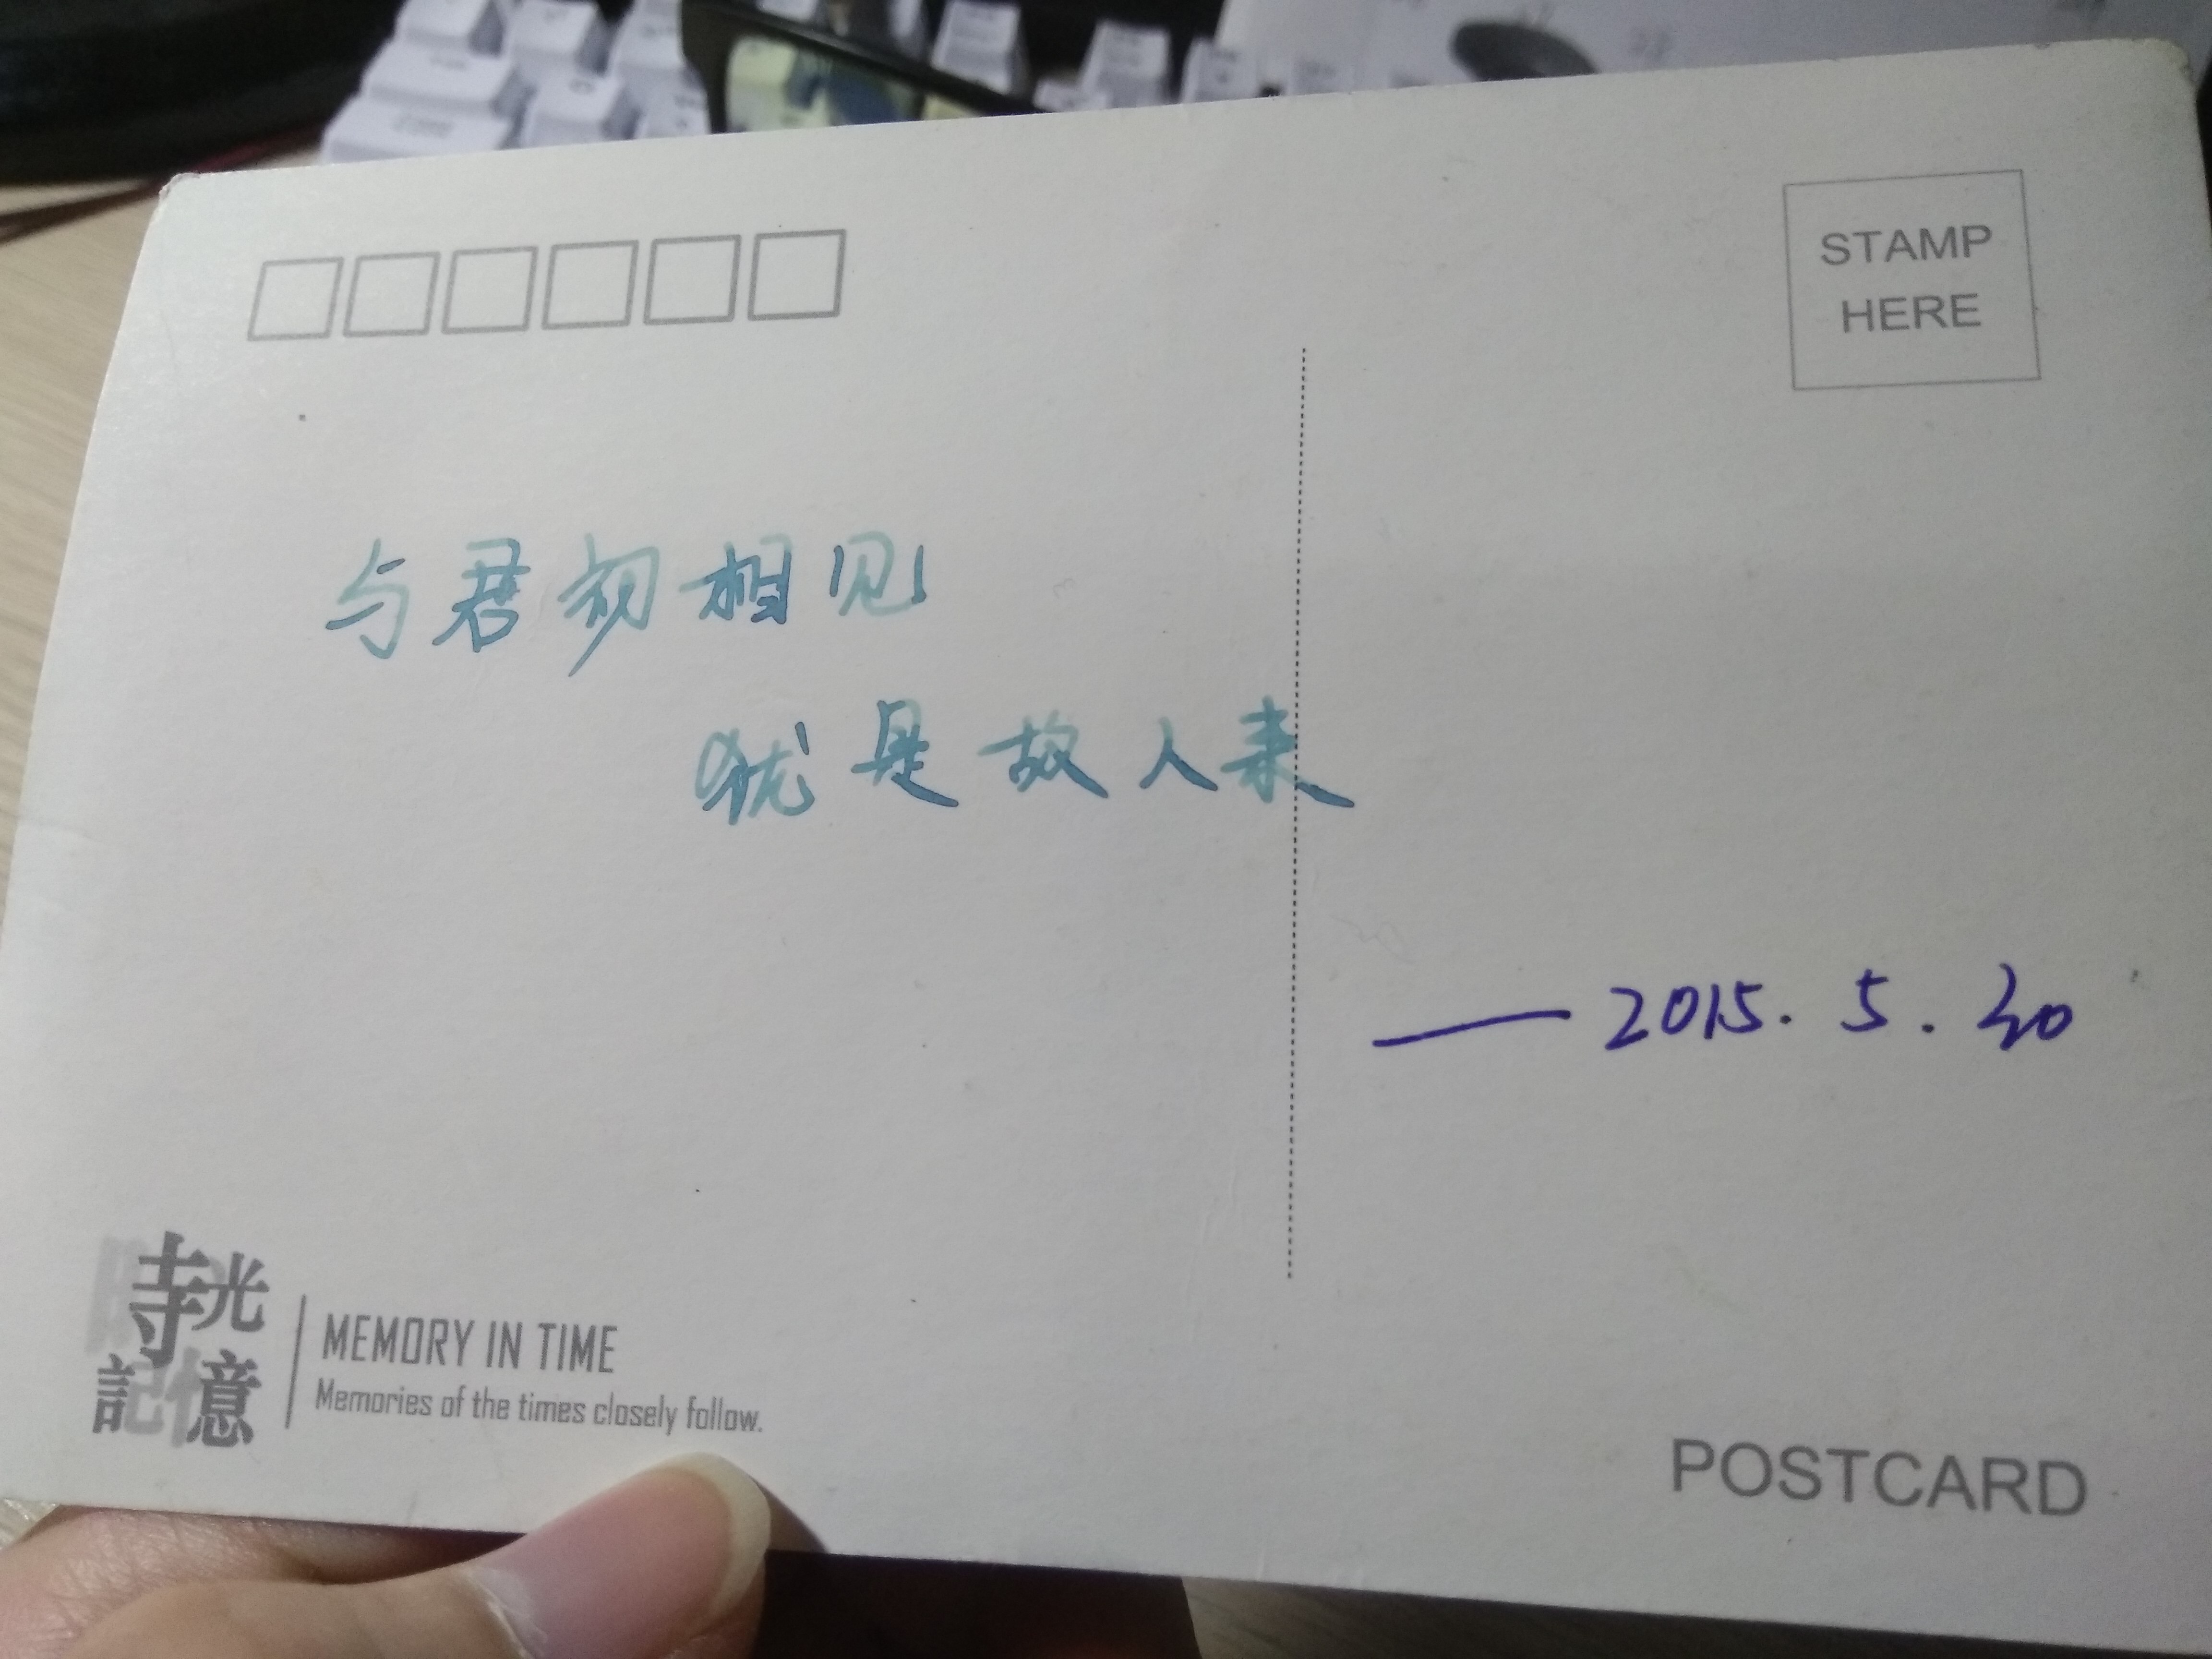 STAMP
HERE
与君初相见
犹是故人来
——2015.5.20
時光
記憶
MEMORY IN TIME
Memories of the times closely follow.
POSTCARD